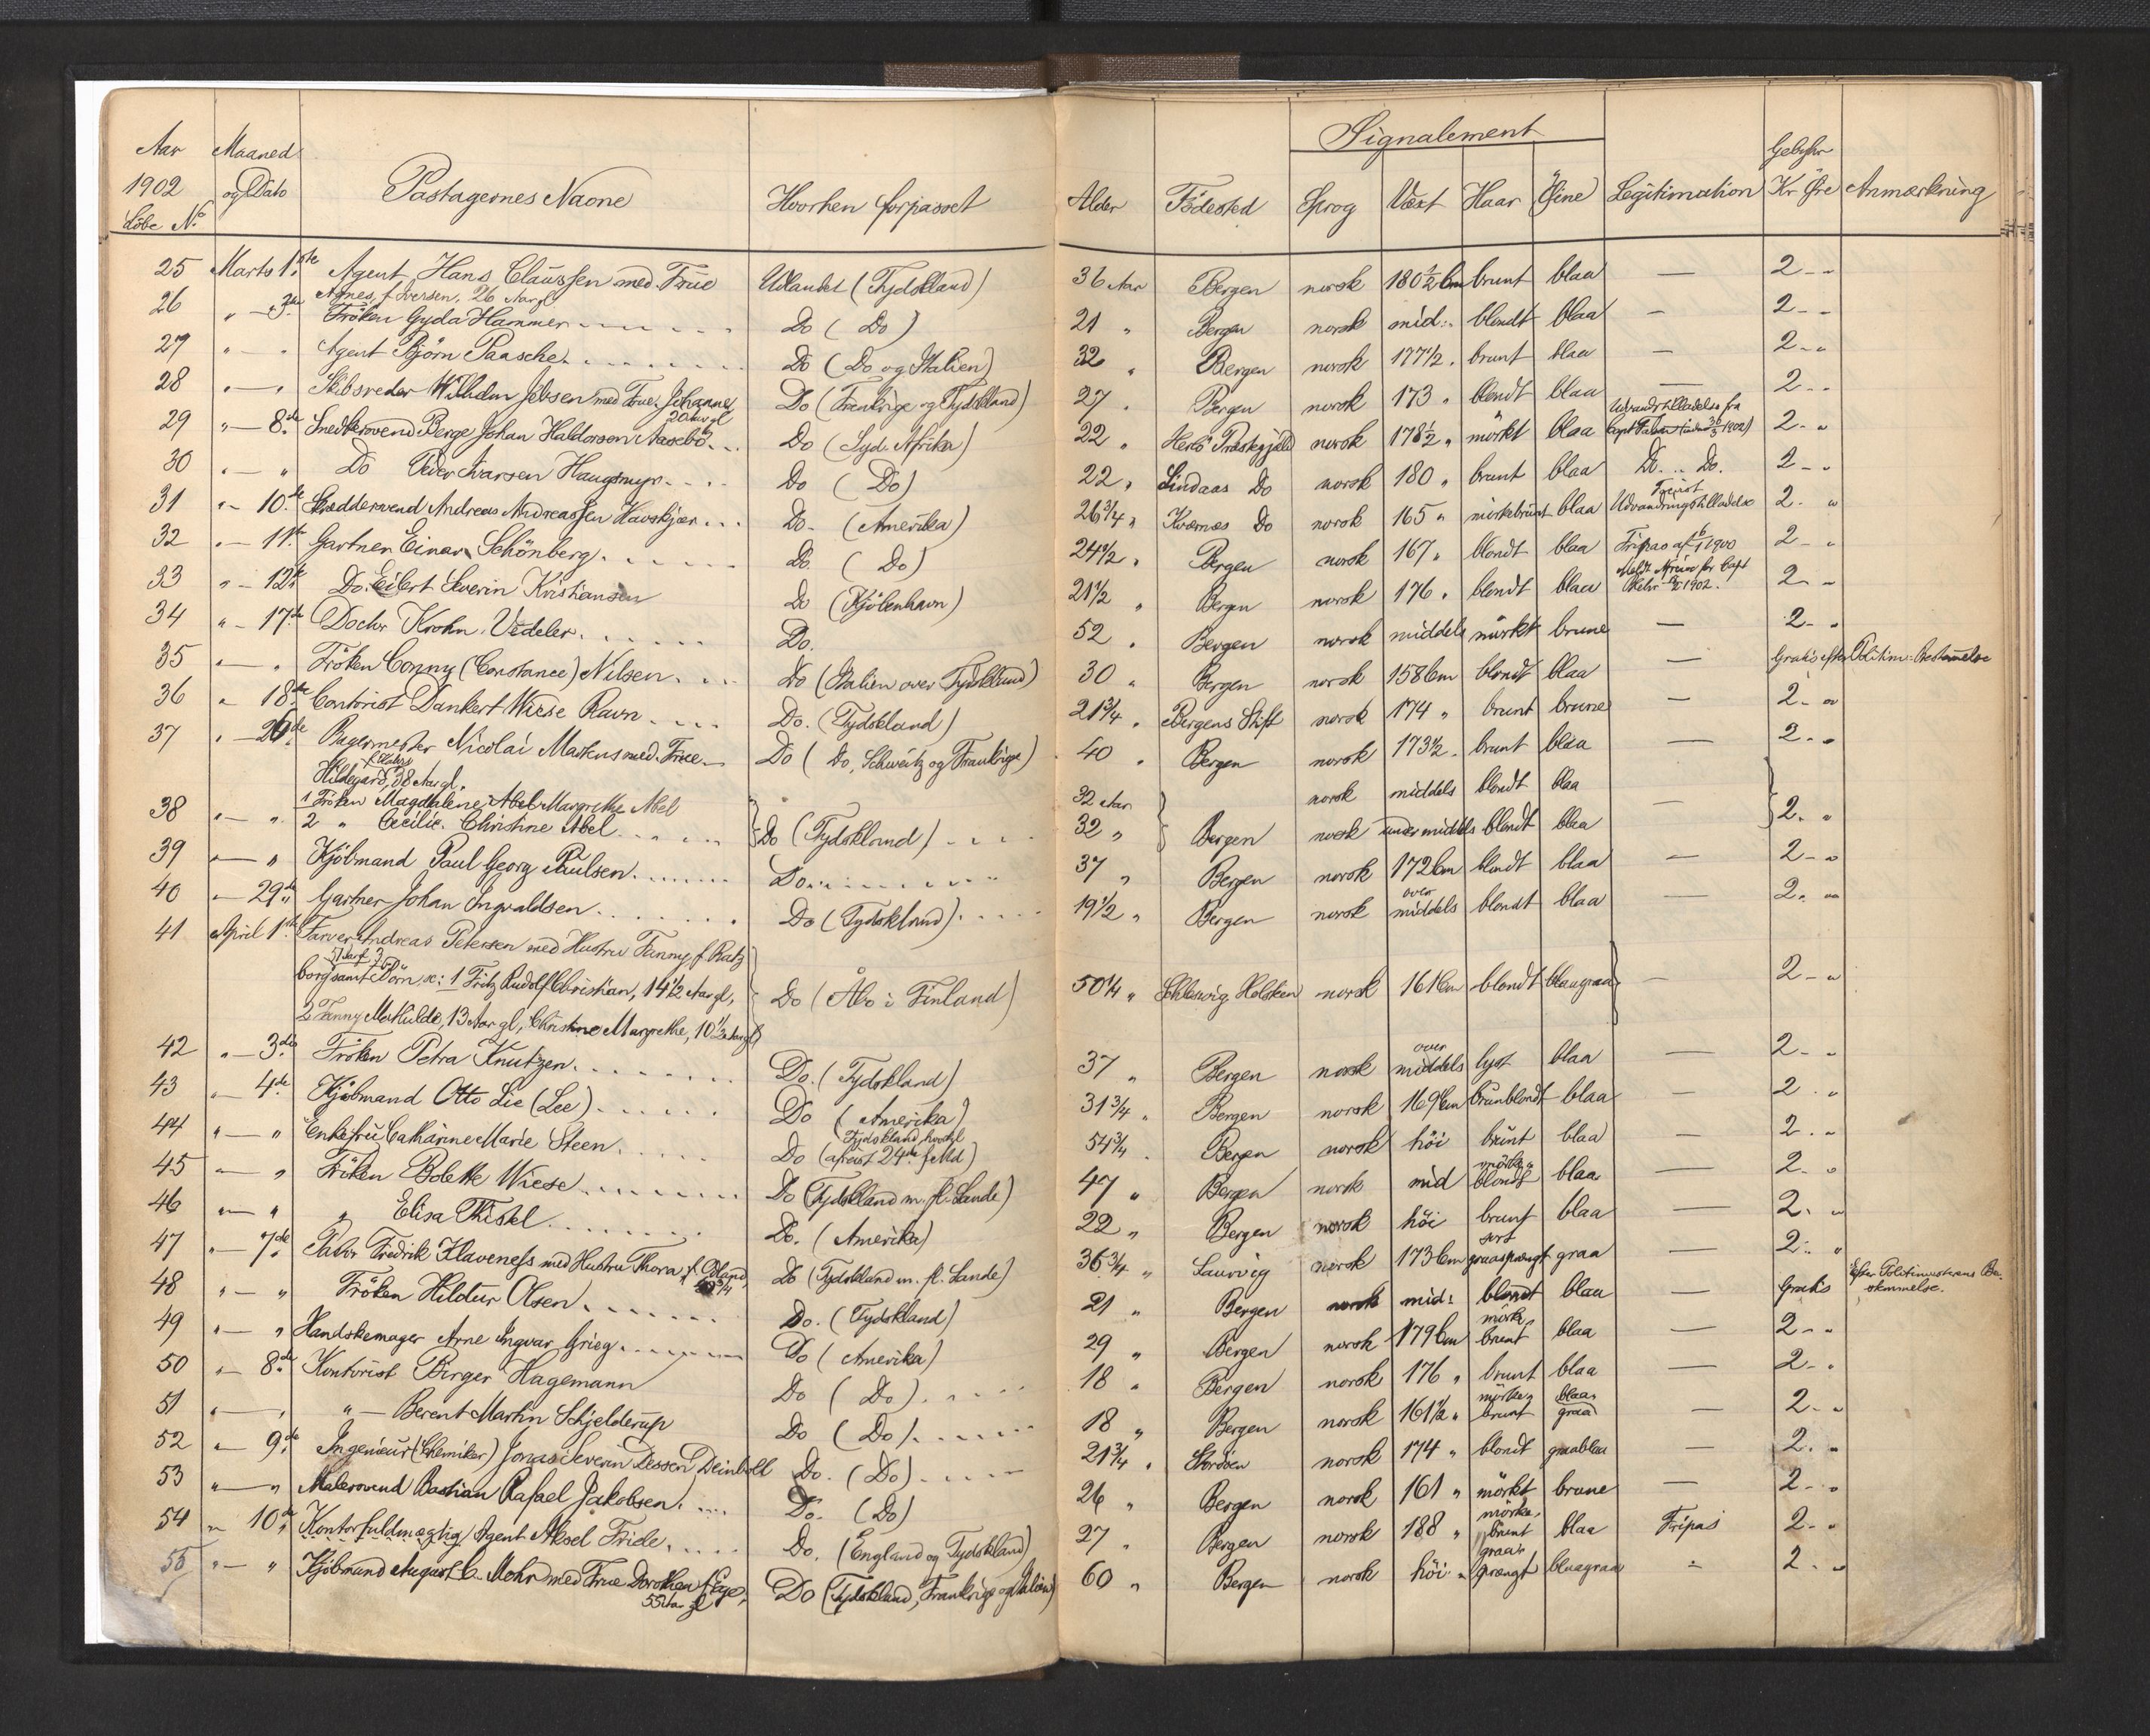 Aar Maaned Signalement Gebyhr
1902 og Dato Pastagernes Navne Hvorhen forpasset Alder Födested Sprog Væxt Haar Öine Legitimation Kr Øre Anmærkning
Löbe No.
25 Marts 1ste Agent Hans Claussen med Frue Udlandet (Tydskland) 36 Aar Bergen norsk 180½ Cm brunt blaa — 2 - "
Agnes f. Iversen, 26 Aar gl.
26 " - 3die Fröken Gyda Hammer Do (Do) 21 " Bergen norsk mid: blondt blaa — 2 - "
27 " — " Agent Björn Paasche Do (Do og Italien) 32 " Bergen norsk 177½ " brunt blaa — 2 - "
28 " — " Skibsreder Wilhelm Jebsen med Frue, Johanne Do (Frankrige og Tydskland) 27 " Bergen norsk 173 " blondt blaa — 2 - "
20 Aar gl
Udvandrtilladelse fra
29 " — 8de Snedkersvend Berge Johan Haldorsen Aasebö Do (Syd-Afrika) 22 " Herlö Præstegjæld norsk 178½ " mörkt blaa 2 - "
30 " — " Do Peder Ivarsen Haugmyr Do (Do) 22 " Lindaas Do norsk 180 " brunt blaa Do .. Do. 2 - "
31 " - 10de Skræddersvend Andreas Andreassen Havskjær Do - (Amerika) 26¾ " Kvernes Do norsk 165 " mörkebrunt blaa Udvandringstilladelse 2 - "
32 " - 11te Gartner Einar Schönberg Do. (Do) 24½ " Bergen norsk 167 " blondt blaa Fripas af 1900 2 - "
33 " - 12te Do. Eilert Severin Kristiansen Do (Kjöbenhavn) 21½ " Bergen norsk 176 " blondt blaa 1902. 2 - "
34 " - 17de Doctor Krohn Vedeler Do. 52 " Bergen norsk middels mörkt brune — 2 - "
35 " — " Fröken Conny (Constance) Nilsen Do (Italien over Tydskland) 30 " Bergen norsk 158 Cm blondt blaa — Gratis efter Politim: Bestemmelse
36 " 18de Contorist Dankert Wiese Ravn Do. (Tydskland) 21¾ " Bergens Stift norsk 174 " brunt brune — 2 - "
37 " — 26de Bagermester Nicolai Markus med Frue Do (Do, Schweitz og Frankrige) 40 " Bergen norsk 173½ " brunt blaa — 2 - "
Hildegard, 38 Aar gl.
38 " — " 1 Fröken Magdalene Abel Margrethe Abel 32 Aar norsk middels blondt blaa
2 " Cecilie Christine Abel Do (Tydskland) 32 " Bergen norsk under middels blondt blaa — 2 - "
39 " — " Kjöbmand Paul Georg Paulsen Do 37 " Bergen norsk 172 Cm blondt blaa — 2 - "
40 " - 29de Gartner Johan Ingvaldsen Do (Tydskland) 19½ " Bergen norsk over middels blondt blaa — 2 - "
41 April 1ste Farver Andreas Petersen med Hustru Fanny f. Ratz
borg samt Börn, sc: 1 Fritz Rudolf Christian, 14½ Aar gl, Do (Åbo i Finland) 50¼ " Schleswig Holsten norsk 161 Cm blondt blaugraa — 2 - "
2 Fanny Mathilde, 13 Aar gl, Christine Margrethe, 10½ Aar gl
42 " - 3die Fröken Petra Knutzen Do. (Tydskland) 37 " Bergen norsk over middels lyst blaa — 2 - "
43 " - 4de Kjöbmand Otto Lie (Lee) Do (Amerika) 31¾ " Bergen norsk 169 Cm brunblondt blaa — 2 - "
44 " — " Enkefru Cathrine Marie Steen Do (Tydskland, hvortil afreist 24de f Md) 54¾ " Bergen norsk höi brunt blaa — 2 - "
45 " — " Fröken Bolette Wiese Do (Tydskland m. fl. Lande) 47 " Bergen norsk mid mörke blondt blaa — 2 - "
46 " — " " Elisa Thistel Do. (Amerika) 22 " Bergen norsk höi brunt blaa — 2 - "
47 " — 7de Pastor Fredrik Klaveness med Hustru Thora, f. Do (Tydskland m. fl. Lande) 36¾ " Laurvig norsk 173 Cm sort graasprængt graa — 2 - "
48 " — " Fröken Hildur Olsen Do. (Tydskland) 21 " Bergen norsk mid: blondt blaa — Gratis Efter Politimesterens Be-
stemmelse.
49 " — " Handskemager Arne Ingvar Grieg Do (Amerika) 29 " Bergen norsk 179 Cm mörke brunt blaa — 2 - "
50 " - 8de Kontorist Birger Hagemann Do (Do) 18 " Bergen norsk 176 " brunt blaa — 2 - "
51 " — " " — Berent Martin Schjelderup Do (Do) 18 " Bergen norsk 161½ " mörke brunt blaa graa — 2 - "
52 " - 9de Ingenieur (Chemiker) Jonas Severin Dessen Deinboll Do. (Do) 21¾ " Stordöen norsk 174 " blondt graablaa — 2 - "
53 " — " Malersvend Bastian Rafael Jakobsen Do. (Do) 26 " Bergen norsk 161 " mörkt brune — 2 - "
54 " - 10de Kontorfuldmægtig, Agent Aksel Friele Do. (England og Tydskland) 27 " Bergen norsk 188 " mörke brunt blaa Fripas 2 - "
55 " — " Kjöbmand August C. Mohr med Frue Dorothea f. Ege, Do (Tydskland, Frankrige og Italien) 60 " Bergen norsk höi " graa sprængt blaagraa " 2 - "
55 Aar gl